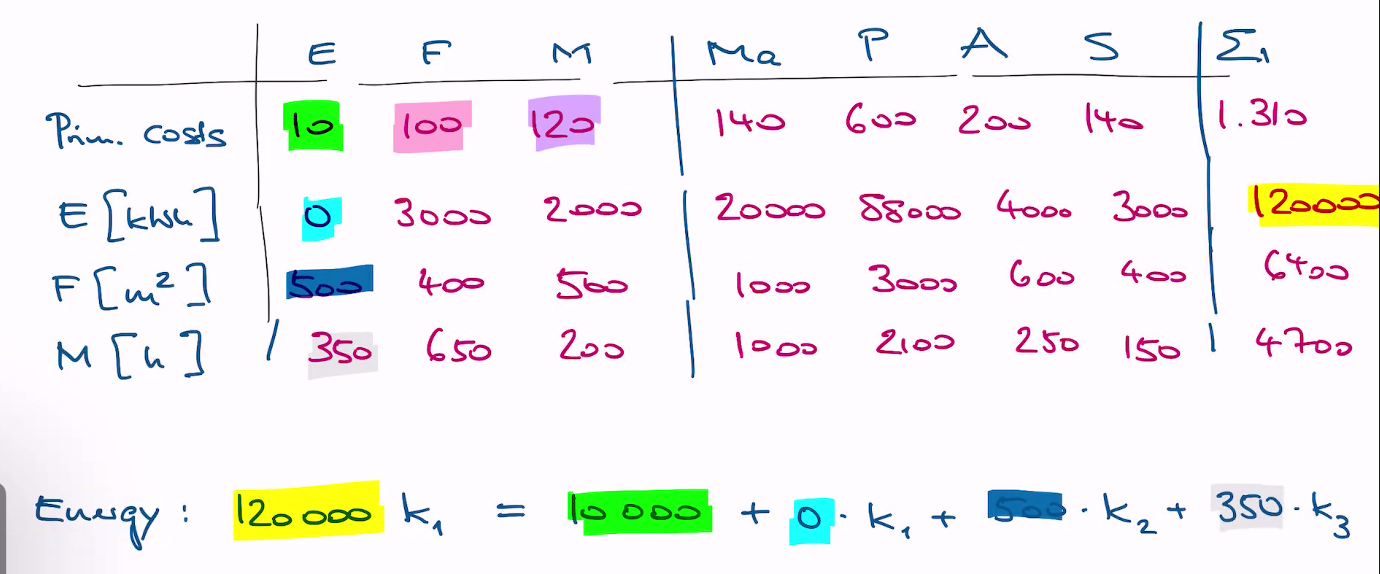 E F M Ma P A S Σ₁
Prim. costs 10 100 120 140 600 200 140 1.310
E [kWh] 0 3000 2000 20000 88000 4000 3000 120000
F [m²] 500 400 500 1000 3000 600 400 6400
M [h] 350 650 200 1000 2100 250 150 4700
Energy : 120 000 k₁ = 10 000 + 0 · k₁ + 500 · k₂ + 350 · k₃